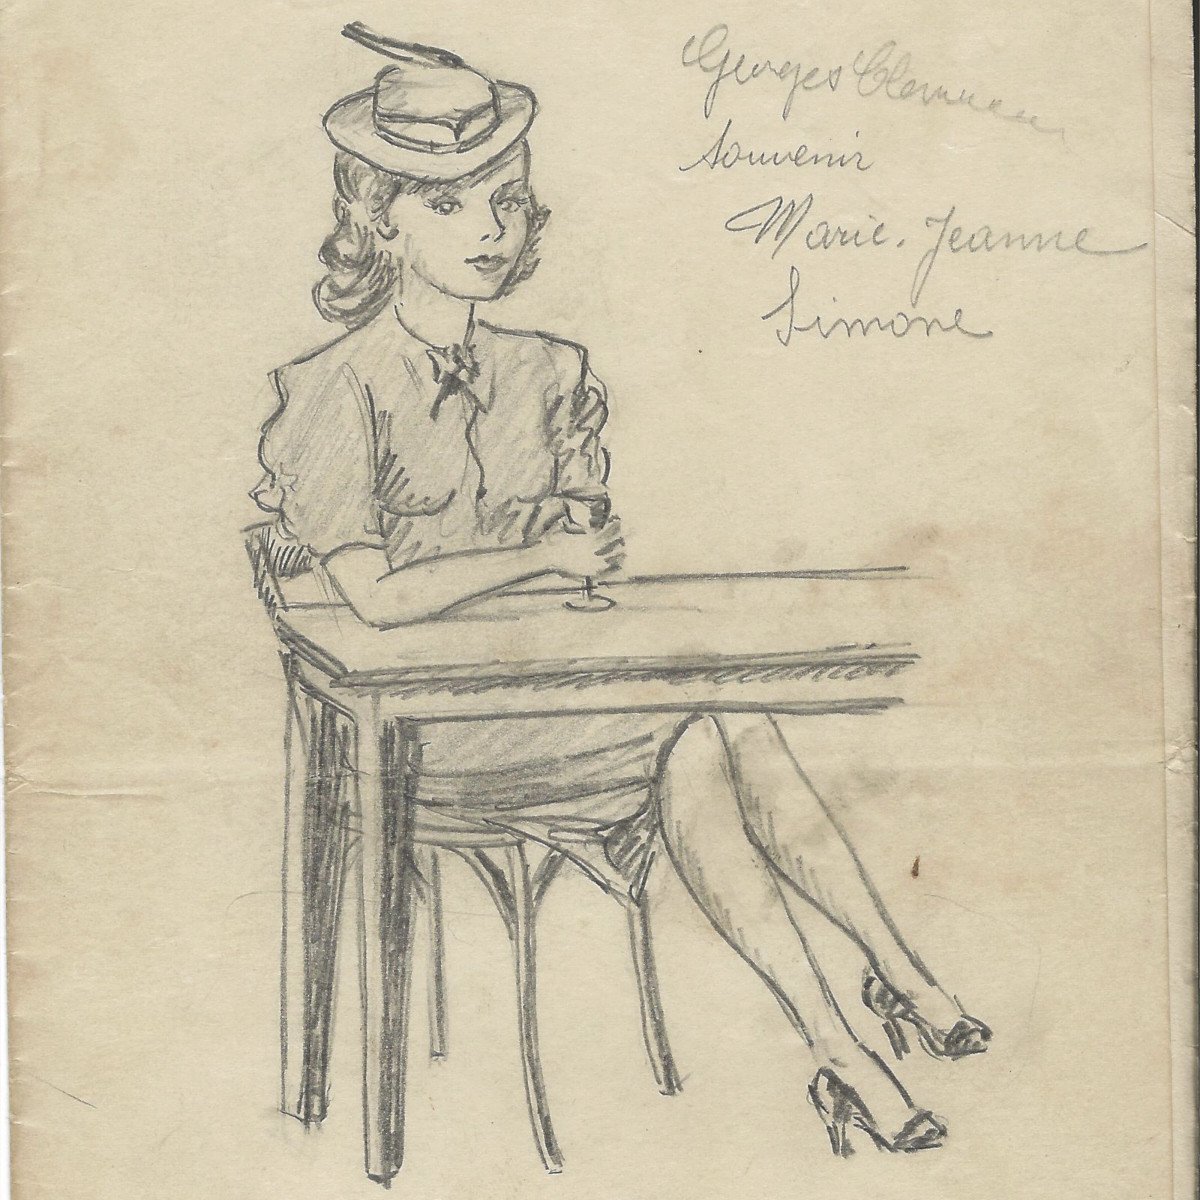 Georges
souvenir
Marie-Jeanne
Simone